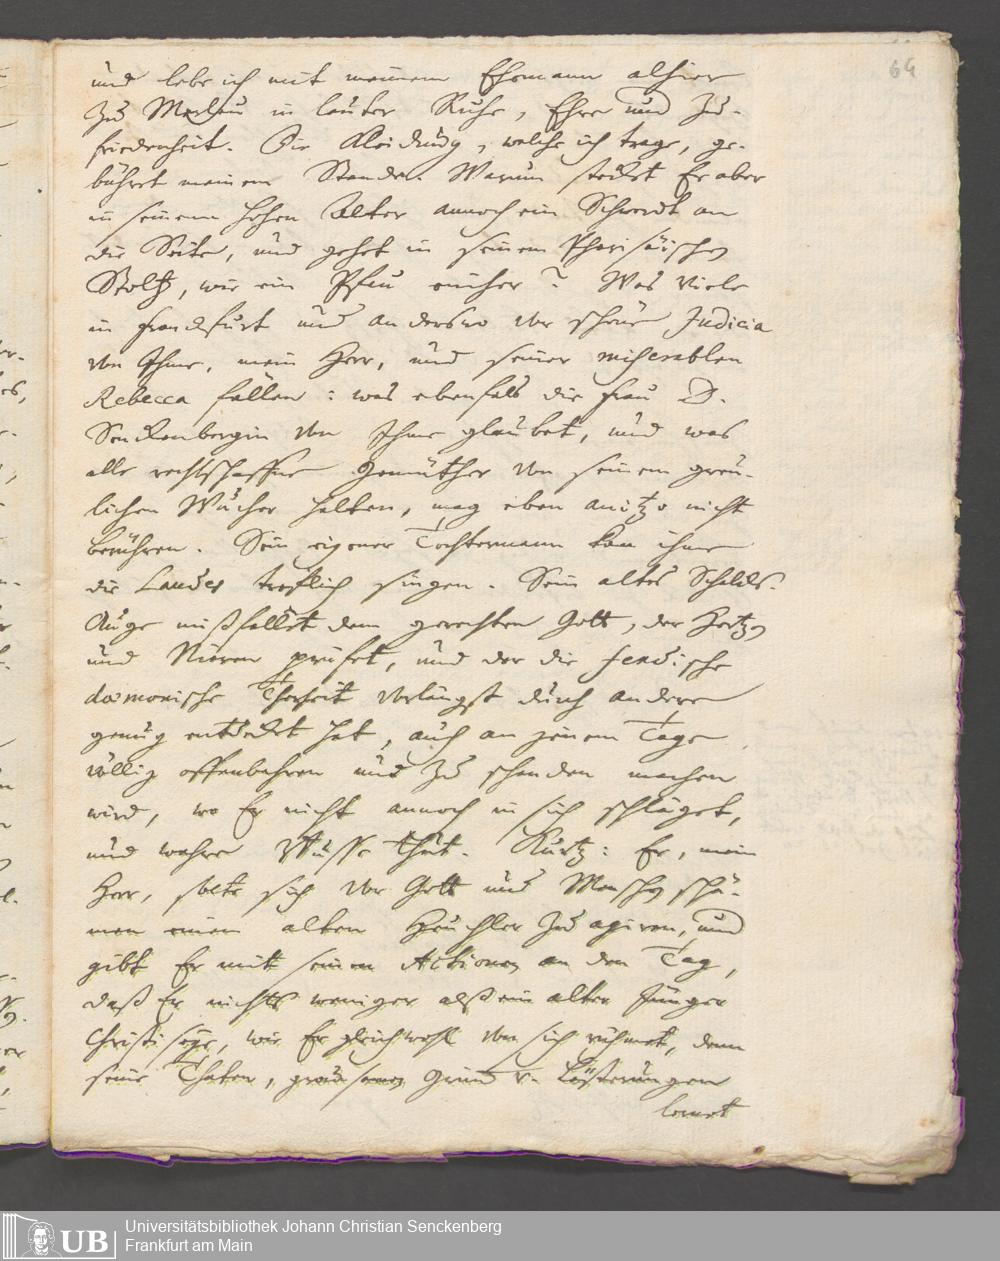 64
und lebe ich mit meinem Ehemann alhier
zu Merlau in lauter Ruhe, Ehre und Zu-
friedenheit. Die Kleidung, welche ich trage, ge-
bühret meinem Stande. Warum stecket Er aber
in seinem hohen Alter annoch ein Schwerdt an
die Seite, und gehet in seinem Pharisäischen
Stoltz, wie ein Pfau einher? Was Viele
in Franckfurt und anderswo vor schöne Judicia
von Ihme, mein Herr, und seiner miserablen
Rebecca fällen: was ebenfals die Frau D.
Senckenbergin von Ihme glaubet, und was
alle rechtschaffne Gemüther von seinem greu-
lichen Wucher halten, mag eben anitzo nicht
berühren. Sein eigener Tochtermann kan ihme
die Laudes treflich singen. Sein altes Schalcks-
Auge mißfället dem gerechten Gott, der Hertzen
und Nieren prüfet, und der die
dæmonische vorlängst durch andere
genug entdecket hat, auch an jenem Tage
völlig offenbahren und zu schanden machen
wird, wo Er nicht annoch in sich schläget,
und wahre Busse thut. Kurtz: Er, mein
Herr, solte sich vor Gott und Menschen schä-
men einen alten Heuchler zu agiren, und
gibt Er mit seinen Actionen an den Tag,
daß Er nichts weniger alß ein alter Jünger
Christi seye, wie Er gleichwohl von sich rühmet, denn
seine Thaten, Grimm v. Lästerungen
lernet
Universitätsbibliothek Johann Christian Senckenberg
Frankfurt am Main
UB